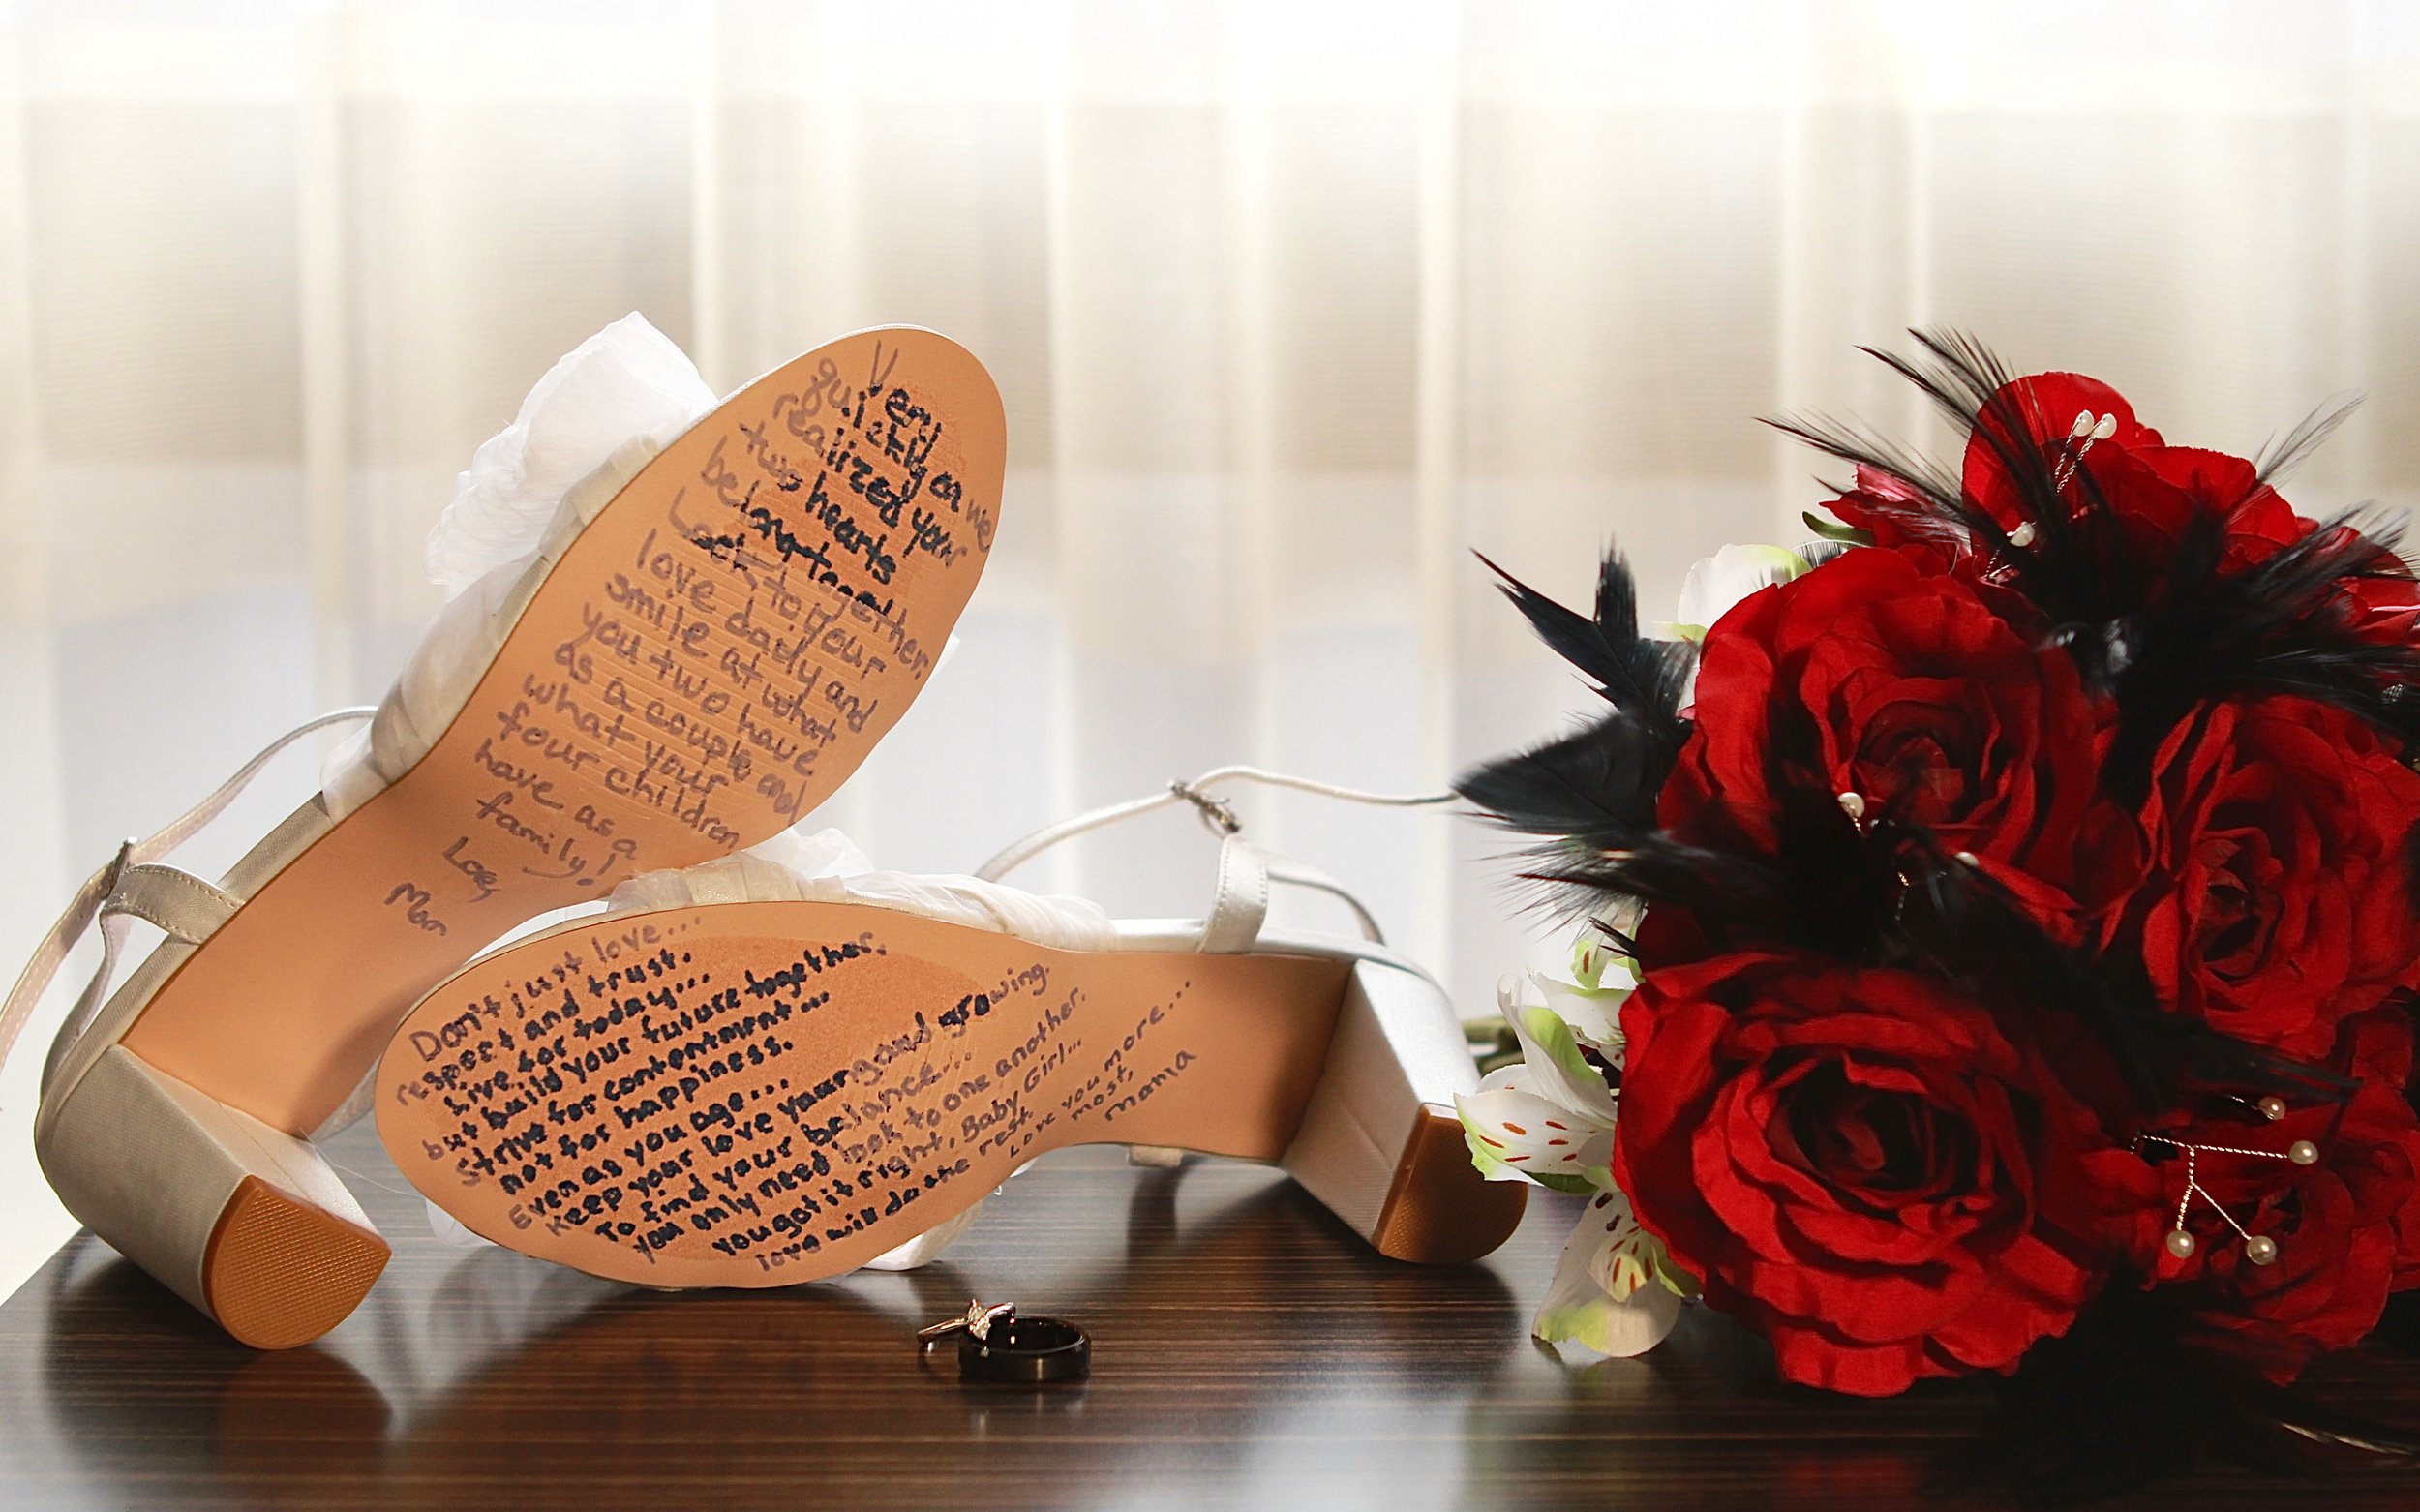 Very
quickly on we
realized your
two hearts
belong together.
Look to your
love daily and
smile at what
you two have
as a couple and
what your
four children
have as a
family!
Love,
Mom
Don't just love...
respect and trust.
Live for today...
but build your future together.
Strive for contentment...
not for happiness.
Even as you age...
Keep your love young and growing.
To find your balance...
you only need look to one another.
You got it right, Baby Girl...
love will do the rest.
Love you more...
most,
Mama